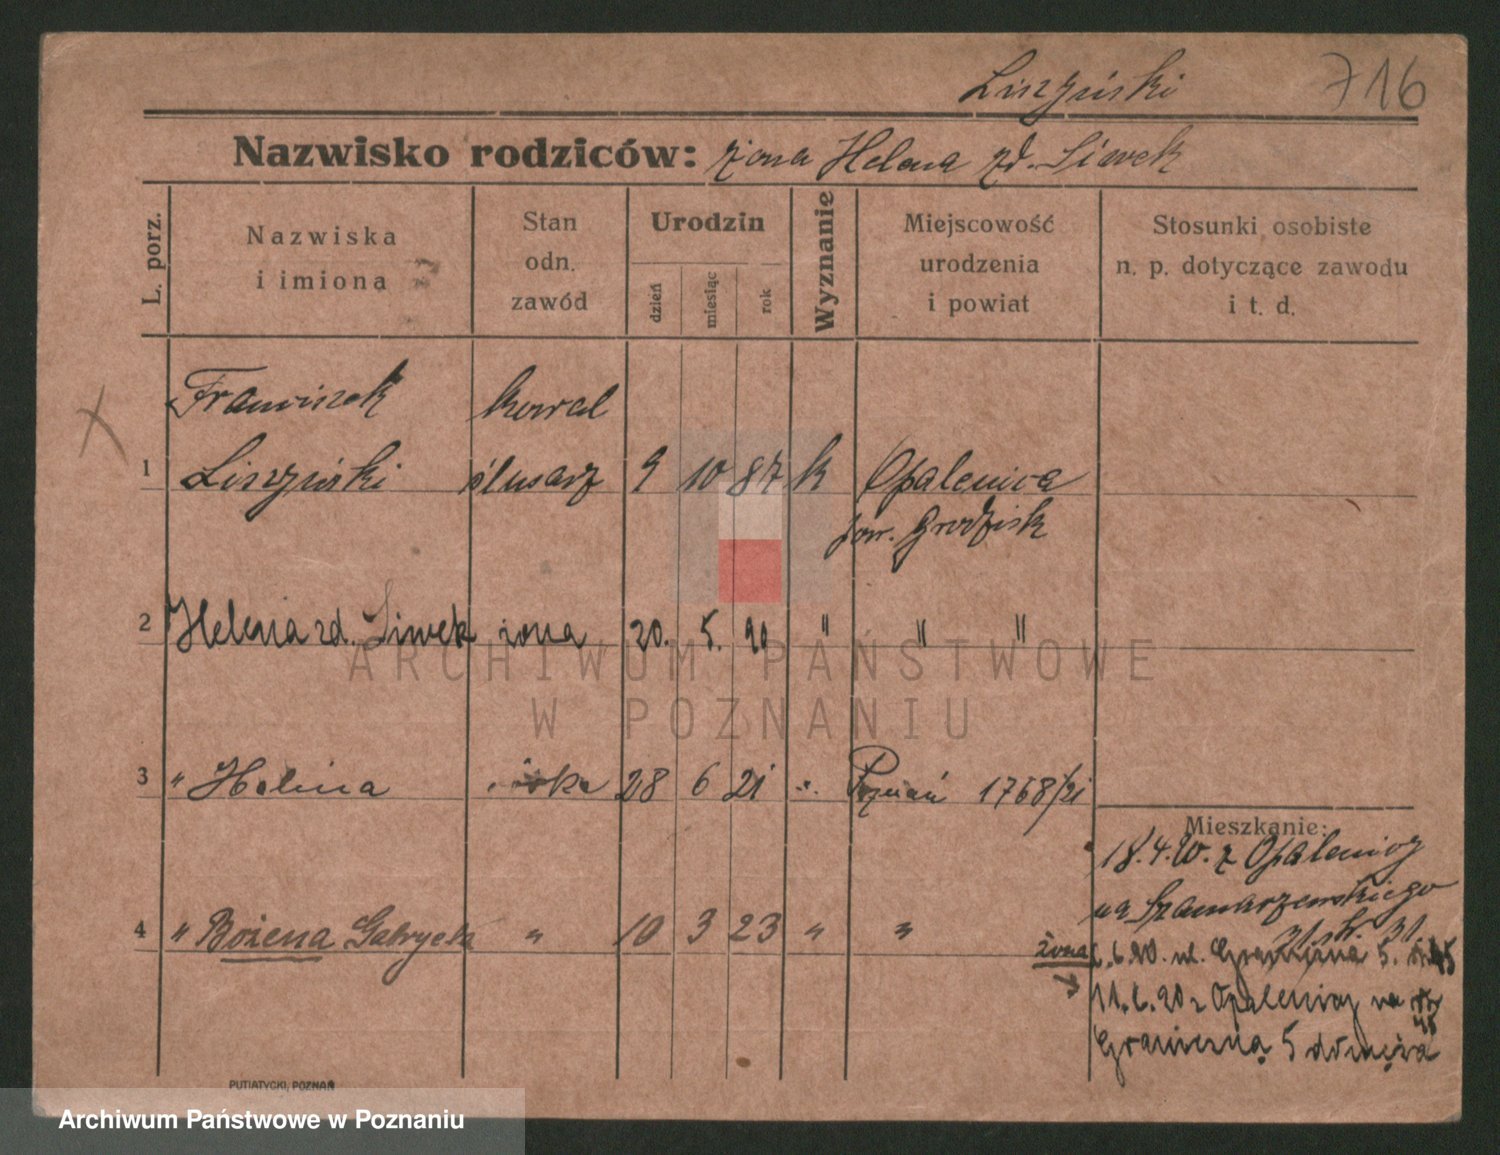 Liszyński 716
Nazwisko rodziców: żona Helena zd. Siwek
L. porz.
Nazwiska
i imiona
Stan
odn.
zawód
Urodzin
dzień
miesiąc
rok
Wyznanie
Miejscowość
urodzenia
i powiat
Stosunki osobiste
n. p. dotyczące zawodu
i t. d.
Franciszek kowal
1 Liszyński ślusarz 9 10 87 k Opalenica
pow. Grodzisk
2 Helena zd. Siwek żona 20. 5. 90 " " "
ARCHIWUM PAŃSTWOWE
W POZNANIU
3 " Halina 28 6 21 Poznań 1768/21
Mieszkanie:
18.4.20. z Opalenicy
na Szamarzewskiego
4 " Bożena Gabryela " 10 3 23 " "
31
żona 6.20. ul. Graniczna 5.
11.6.20 z Opalenicy na
Graniczną 5 do męża
PUTIATYCKI, POZNAŃ
Archiwum Państwowe w Poznaniu